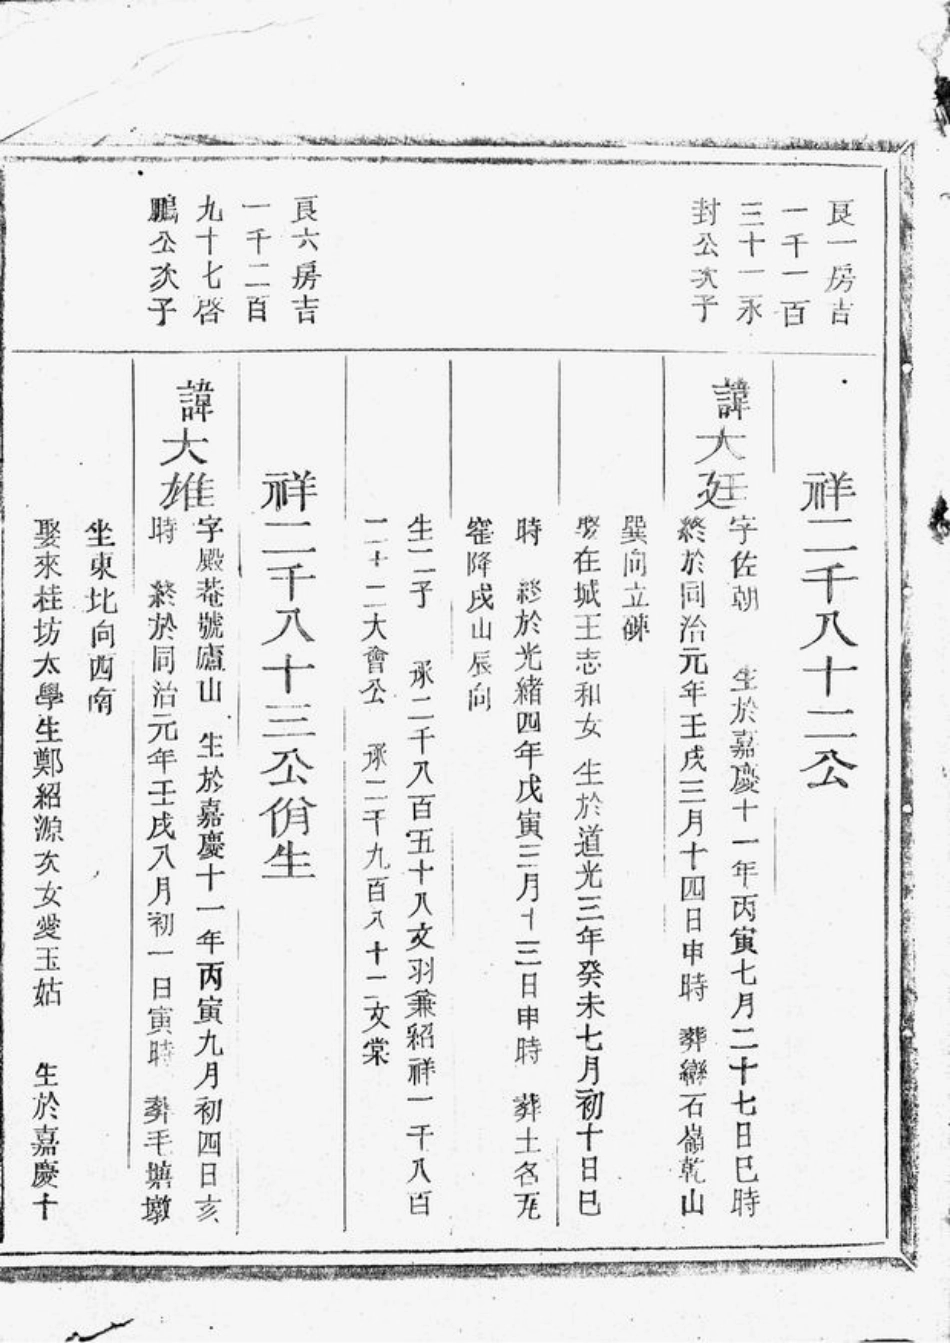 良一房吉
一千一百
三十一永
封公次子
祥二千八十二公
諱大廷
字佐朝 生於嘉慶十一年丙寅七月二十七日巳時
終於同治元年壬戌三月十四日申時 葬 石 乾山
巽向立碑
娶在城王志和女 生於道光三年癸未七月初十日巳
時 終於光緒四年戊寅三月十三日申時 葬土名瓦
窑降戌山辰向
生二子 承二千八百五十八文羽兼紹祥一千八百
二十二大會公 承二千九百八十二文棠
良六房吉
一千二百
九十七啓
鵬公次子
祥二千八十三公佾生
諱大雄
字殿菴號廬山 生於嘉慶十一年丙寅九月初四日亥
時 終於同治元年壬戌八月初一日寅時 葬毛塘墩
坐東北向西南
娶來桂坊太學生鄭紹源次女愛玉姑 生於嘉慶十